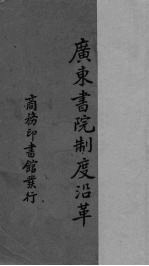 廣東書院制度沿革
商務印書館發行